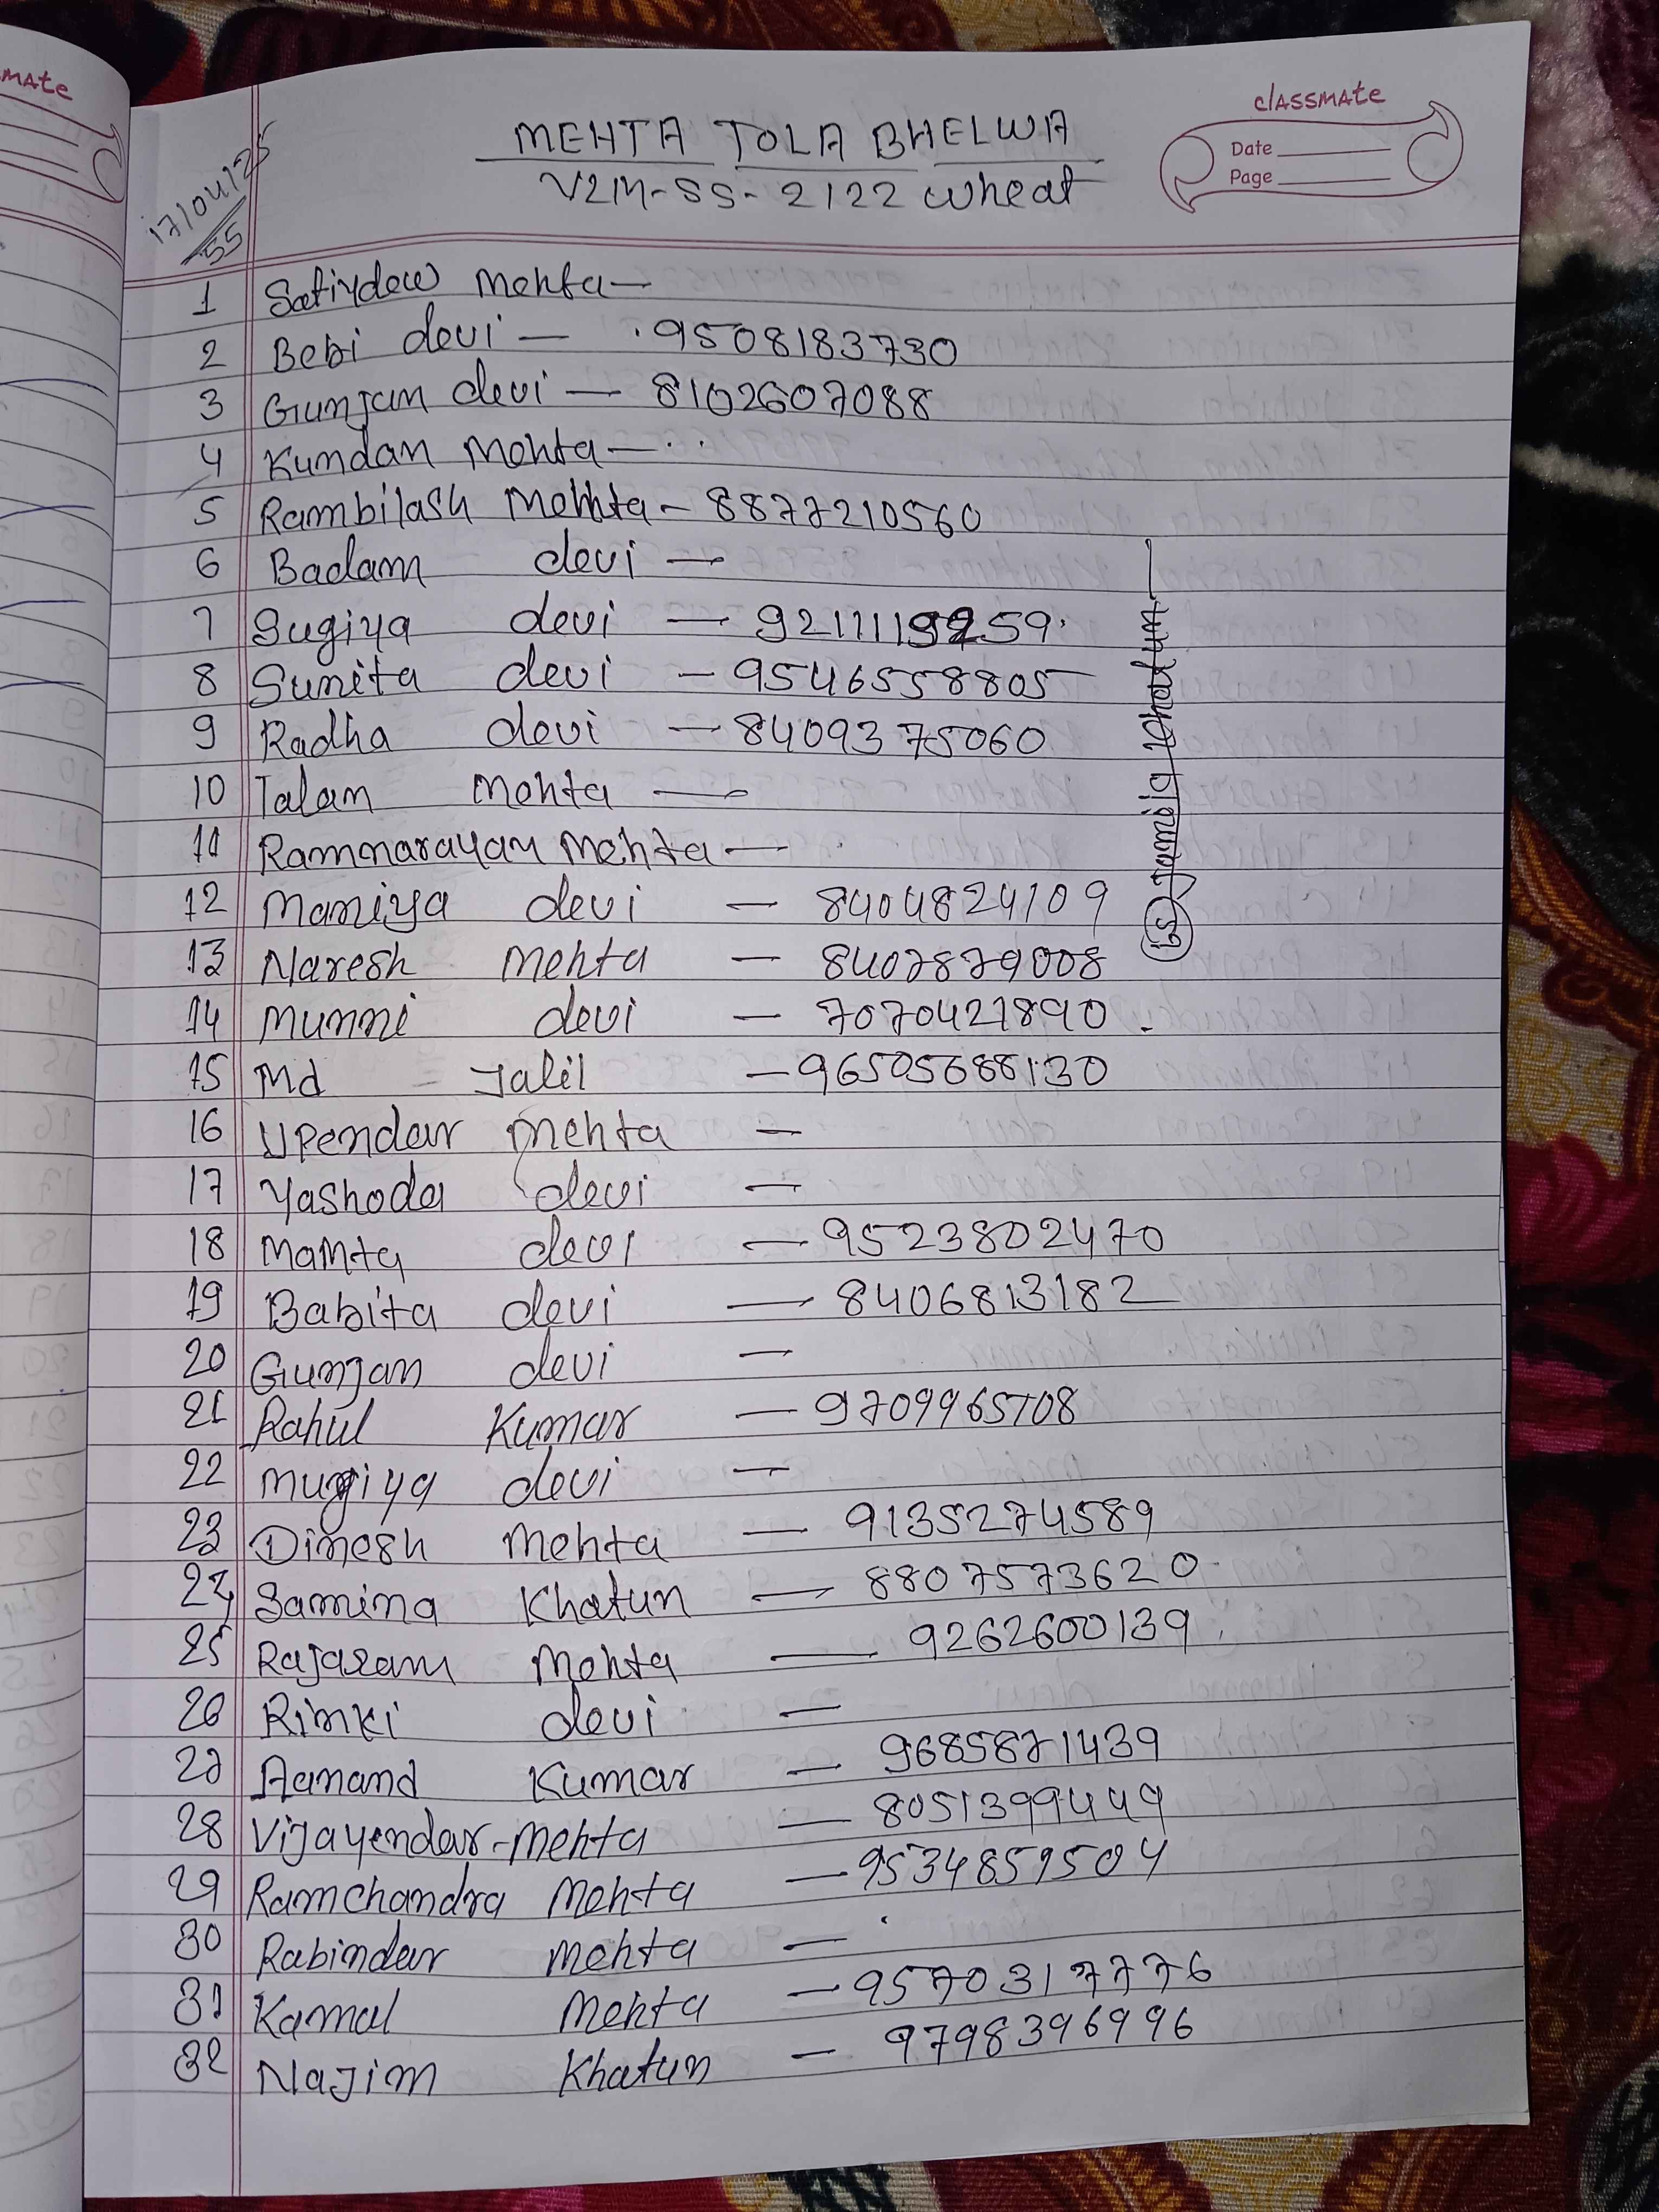 MATE
classmate
Date
Page
17/04/25
55
MEHTA TOLA BHELWA
V2M-SS-2122 wheat
1 Satiydew Mehta —
2 Bebi devi — 9508183730
3 Gunjan devi — 8102607088
4 Kundan Mehta —
5 Rambilash Mehta - 8877210560
6 Badam devi —
7 Sugiya devi —
8 Sunita devi — 9546558805
9 Radha devi — 8409375060
10 Talan Mehta —
11 Ramnarayan Mehta —
12 Maniya devi — 8404824109
13 Naresh Mehta — 8407879008
14 Munni devi — 7070421890
15 Md Jalil — 96505688130
16 Upendar Mehta —
17 Yashoda devi —
18 Mamta devi — 9523802470
19 Babita devi — 8406813182
20 Gunjan devi —
21 Rahul Kumar — 9709965708
22 Mugiya devi —
23 Dinesh Mehta — 9135274589
24 Samina Khatun — 8807573620
25 Rajaram Mehta — 9262600139
26 Rinki devi —
27 Aanand Kumar — 9685871439
28 Vijayendar-Mehta — 8051399449
29 Ramchandra Mehta — 9534859504
30 Rabindar Mehta —
31 Kamal Mehta — 9570317776
32 Najim Khatun — 9798396996
65 Jamila Khatun —